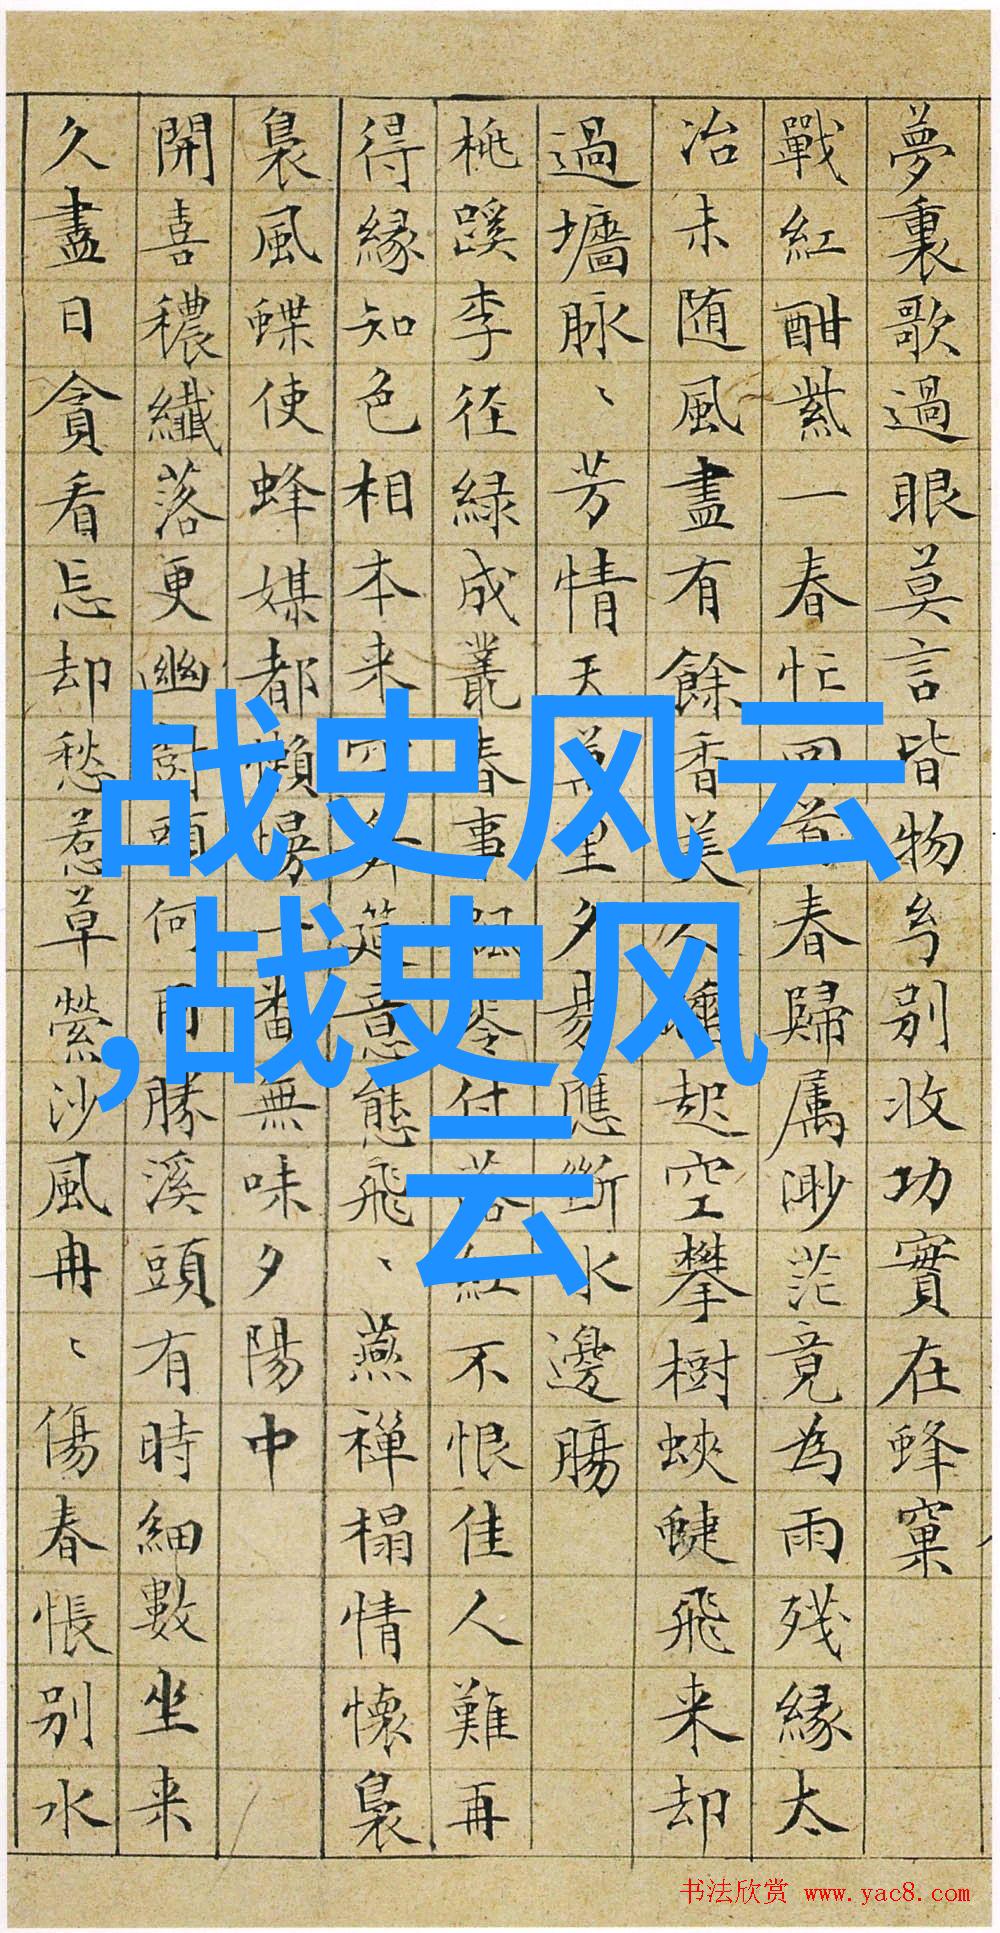 夢裏歌過眼莫言皆物兮别收功實在蜂窠
戰紅酣紫一春忙回首春歸属渺茫竟為雨残緣太
冶未随風盡有餘香美人起空攀樹蛺蜨飛来却
過墻脉、芳情天里夕易應斷水邊腸
桃蹊李径緑成叢春事飄零付落紅不恨佳人難再
得緣知色相本来空筵意態飛、燕禅榻情懷裊
裊風蝶使蜂媒都懶場一番無味夕陽中
開喜穠纖落更幽樹頭何用勝溪頭有時細數坐来
久盡日貪看忘却愁惹草縈沙風冉、傷春悵别水
战史风云
,战史风
云
书法欣赏 www.yac8.com